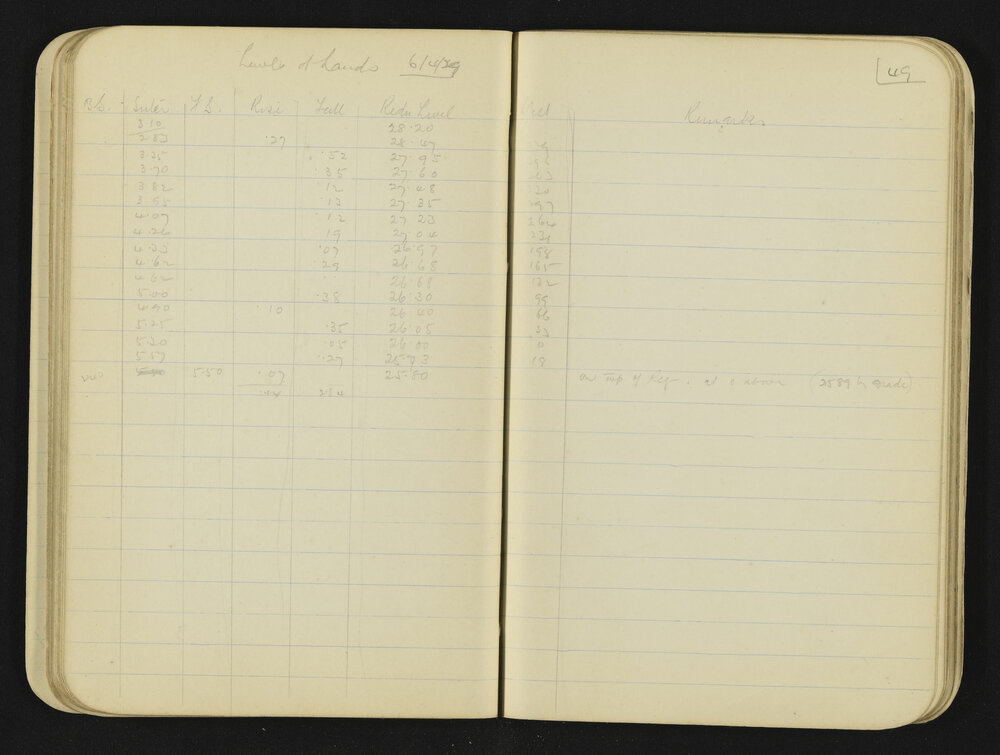 Levels d Lands 6/4/29
49
B.S. Inter F.S. Rise Fall Redu Level Remarks
3.10 28.20
2.83 .27 28.47
3.35 .52 27.95
3.70 .35 27.60
3.82 .12 27.48
3.95 .13 27.35
4.07 .12 27.23 264
4.26 .19 27.04 231
4.33 .07 26.97 198
4.62 .29 26.68 165
4.62 26.68 132
5.00 .38 26.30 99
4.90 .10 26.40 66
5.25 .35 26.05 33
5.30 .05 26.00 0
5.57 .27 25.73 19
5.50 .07 25.80 on Top of Peg. at 0 above (25.89 by grade)
.44 2.84